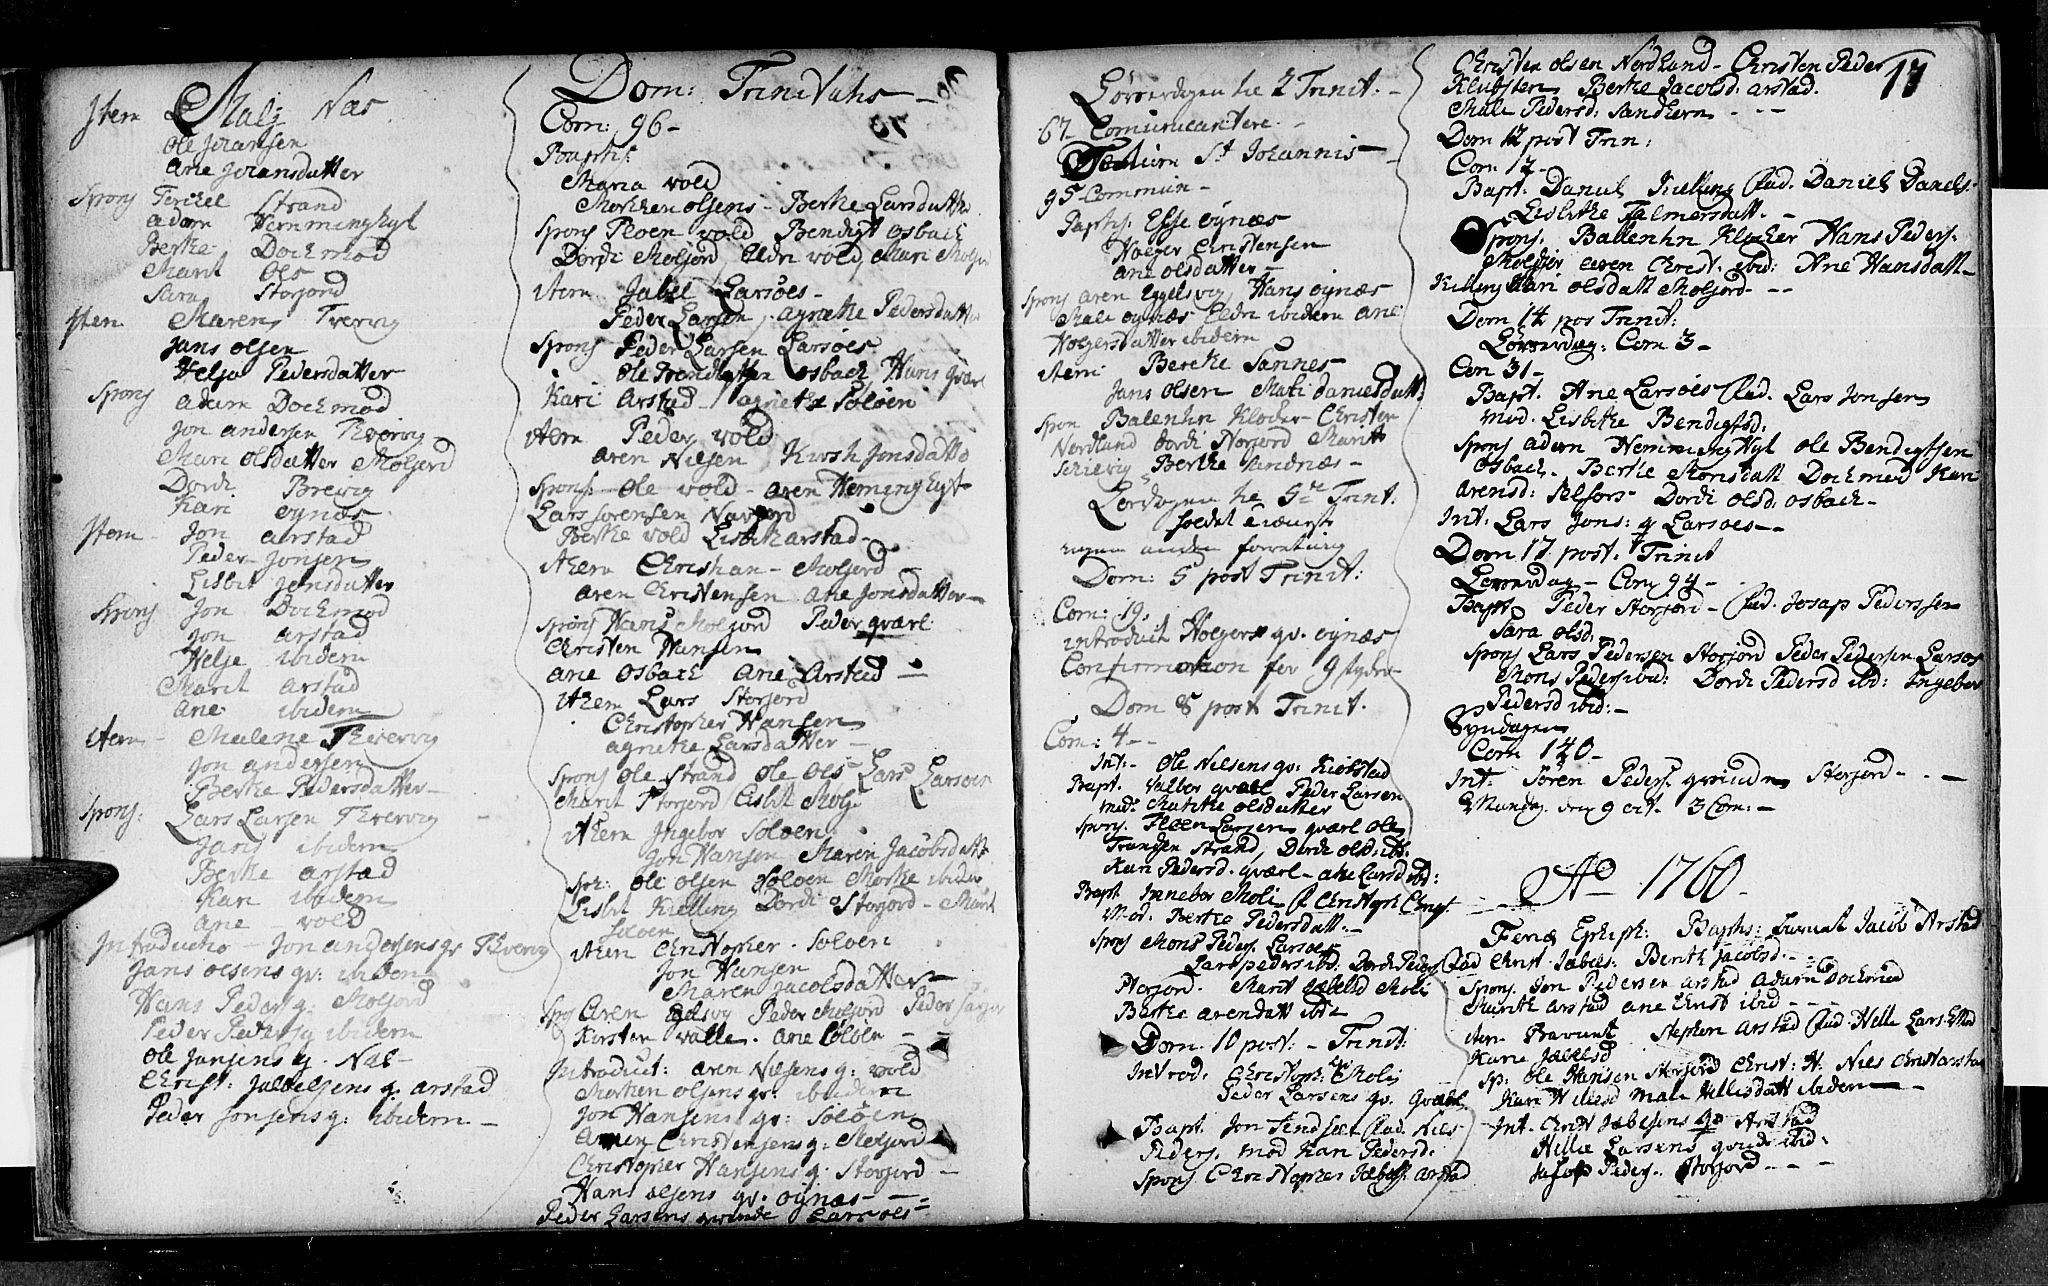 Item Mali Næs
Ole Johansen
Ane Johansdatter
Spons Terchel Strand
Adam Hemminghyt
Berthe Dochmod
Marit Ols
Sara Storjord
Item Maren Tvervig
Jans Olsen
Helje Pedersdatter
Spons Adam Dochmod
Jon Andersen Tvervig
Mari Olsdatter Moljord
Dordi Brevig
Kari Øynæs
Item Jon Arstad
Peder Jonsen
Lisbet Jonsdatter
Spons Jon Dochmod
Jon Arstad
Helje ibidem
Marit Arstad
Ane ibidem
Item Malene Tvervig
Jon Andersen
Berthe Pedersdatter
Spons: Lars Larsen Tvervig
Jans ibidem
Berthe Arstad
Kari ibidem
Ane Vold
Introductio Jon Andersens qv Tvervig
Jans Olsens qv: ibidem
Hans Peders q: Moljord
Peder Peders q ibidem
Ole Jansens q. Næs
Christ: Jabbelsens q: Arstad
Peder Jonsens q: ibidem
Dom: Trinitatis
Com: 96
Baptis:
Maria Vold
Morthen Olsens - Berthe Larsdatter
Spons Floen Vold Bendigt Osbach
Dordi Moljord Eldri Vold Mari Moljord
Item Jabel Larsøes
Peder Larsen, Agnethe Pedersdatter
Spons Peder Larsen Larsøes
Ole Osbach Hans Qværl
Kari Arstad Agnethe Soløen
Item Peder Vold
Aren Nilsen Kirsti Jonsdatter
Spons: Ole Vold - Aren Heminghyt
Lars Sørensen Navjord
Berthe Vold Lisbeth Arstad
Item Christian - Moljord
Aren Christensen Ane Jonsdatter
Spons Hans Moljord Peder Qværl
Christen Hansen
Ane Osbach Ane Arstad
Item Lars Storjord
Christopher Hansen
Agnethe Larsdatter
Spons Ole Strand Ole Ols Lars Larsøes
Marit Storjord Lisbet Molj
Item Ingebor Soløen
Jon Hansen Maren Jacobsdatt
Sp: Ole Olsen Soløen Morthe ibidem
Lisbet Kielling Dordi Storjord - Marit
Soløen
Item Christopher Soløen
Jon Hansen
Maren Jacobsdatter
Spo Aren Peder Moljord Peder
Kirsten Valle. Ane Soløen
Introduct: Aren Nilsens q: Vold
Morthen Olsens qv: ibidem
Jon Hansens qv: Soløen
Aren Christensens q: Moljord
Christopher Hansens q: Storjord
Hans Olsens qv. Øynæs
Peder Larsens qvinde Larsøes
Løverdagen før 2 Trinit.
67 Communicantere
Festum St Johannis
95 Commun
Baptis. Effe Øynæs
Holger Christensen
Ane Olsdatter
Spons Aren Eggelsvig, Hans Øynæs
Mali Øynæs Eldri ibidem Ane
Holgersdatter ibidem
Item: Berethe Sannes
Jans Olsen Mali Danielsdatt:
Spon Balenhn Klocker Christen
Nordland Dordi Norjord Marit
Berthe Sandnæs
Løverdagen før 5te Trinit.
ingen anden forretning
Dom: 5 post Trinit:
Com: 19.
Introduct Holgers qv. Øynæs
Confirmation for 9 stykr
Dom 8 post Trinit.
Com: 4
Int: Ole Nilsens qv: Kiobstad
Bapt. Valber Qværl Peder Larsen
mod: Marithe Olsdatter
Spons. Floen Larsen Qværl Ole
Strand, Dordi Olsd: ib:
Kari Pedersd. Qværl - Ane Larsd ibd:
Bapt Inneber Moli F Christoph Christ
Mod. Berthe Pedersdatt.
Spons Mons Peders. Larsøes
Lars Peders ibd: Dordi Peders
Storjord. Marit Jabelsd Moli
Berthe Arendatt ibd:
Dom 10 post: Trinit:
Introd. Christoph: Moli
Peder Larsens qv. Qværl
Bapt. Jon Fad. Nils
Peders. mod Kari Pedersd:
Spons Christopher Jabels: Arstad
17
Christen Olsen Nordland - Christen Peder
Berthe Jacobsd: Arstad.
Male Pedersd. Sandhorn
Dom 12 post Trin:
Com 12
Bapt. Daniel Kielling Fad. Daniel Daniels.
Lisbethe Falmersdatt.
Spons. Ballenhn Klocker Hans Peders.
Moljord Aren Christ. ibid: Ane Hansdatt
Kielling Kari Olsdatt Moljord
Dom 14 pos Trinit:
Løverdag: Com 3
Com 31
Bapt. Ane Larsøes Fad. Lars Jonsen
mod. Lisbethe Bendigtsd:
Spons Adam Hemminghyt Ole Bendigtsen
Osbach. Berthe Monsdatt Dochmod Kari
Arensd: Dordi Olsd. Osbach
Int: Lars Jons: q Larsøes
Dom 17 post. Trinit
Løverdag - Com 94
Bapt Peder Storjord - Fad. Josap Pederssen
Sara Olsd.
Spons Lars Pedersen Storjord Peder Pedersen Larsøs
Mons Peders ibid: Dordi Pedersd ibd: Ingeber
Pedersd ibid:
Syndagen
Com 140
Int: Søren Peders. qvinde Storjord
Mandag den 9 Oct. 3 Com:
Ao 1760
Feriæ Epiph: Baptis: Jacob Arstad
Fad Christ Jabels: Berith Jacobsd.
Spons. Jon Pedersen Arstad Adam Dochmod
Marithe Arstad Ane Christ ibid
Item Stephen Arstad Fad. Helle Lars. Mod
Karie Jabelsd
Sp: Ole Hansen Storjord Christ: H: Niels Christ Arstad
Kari Hellesd Mali Hellisdatt ibidem
Int. Christ Jabelsens qv Arstad
Helle Larsens qvinde ibid:
Josop Peders. Storjord